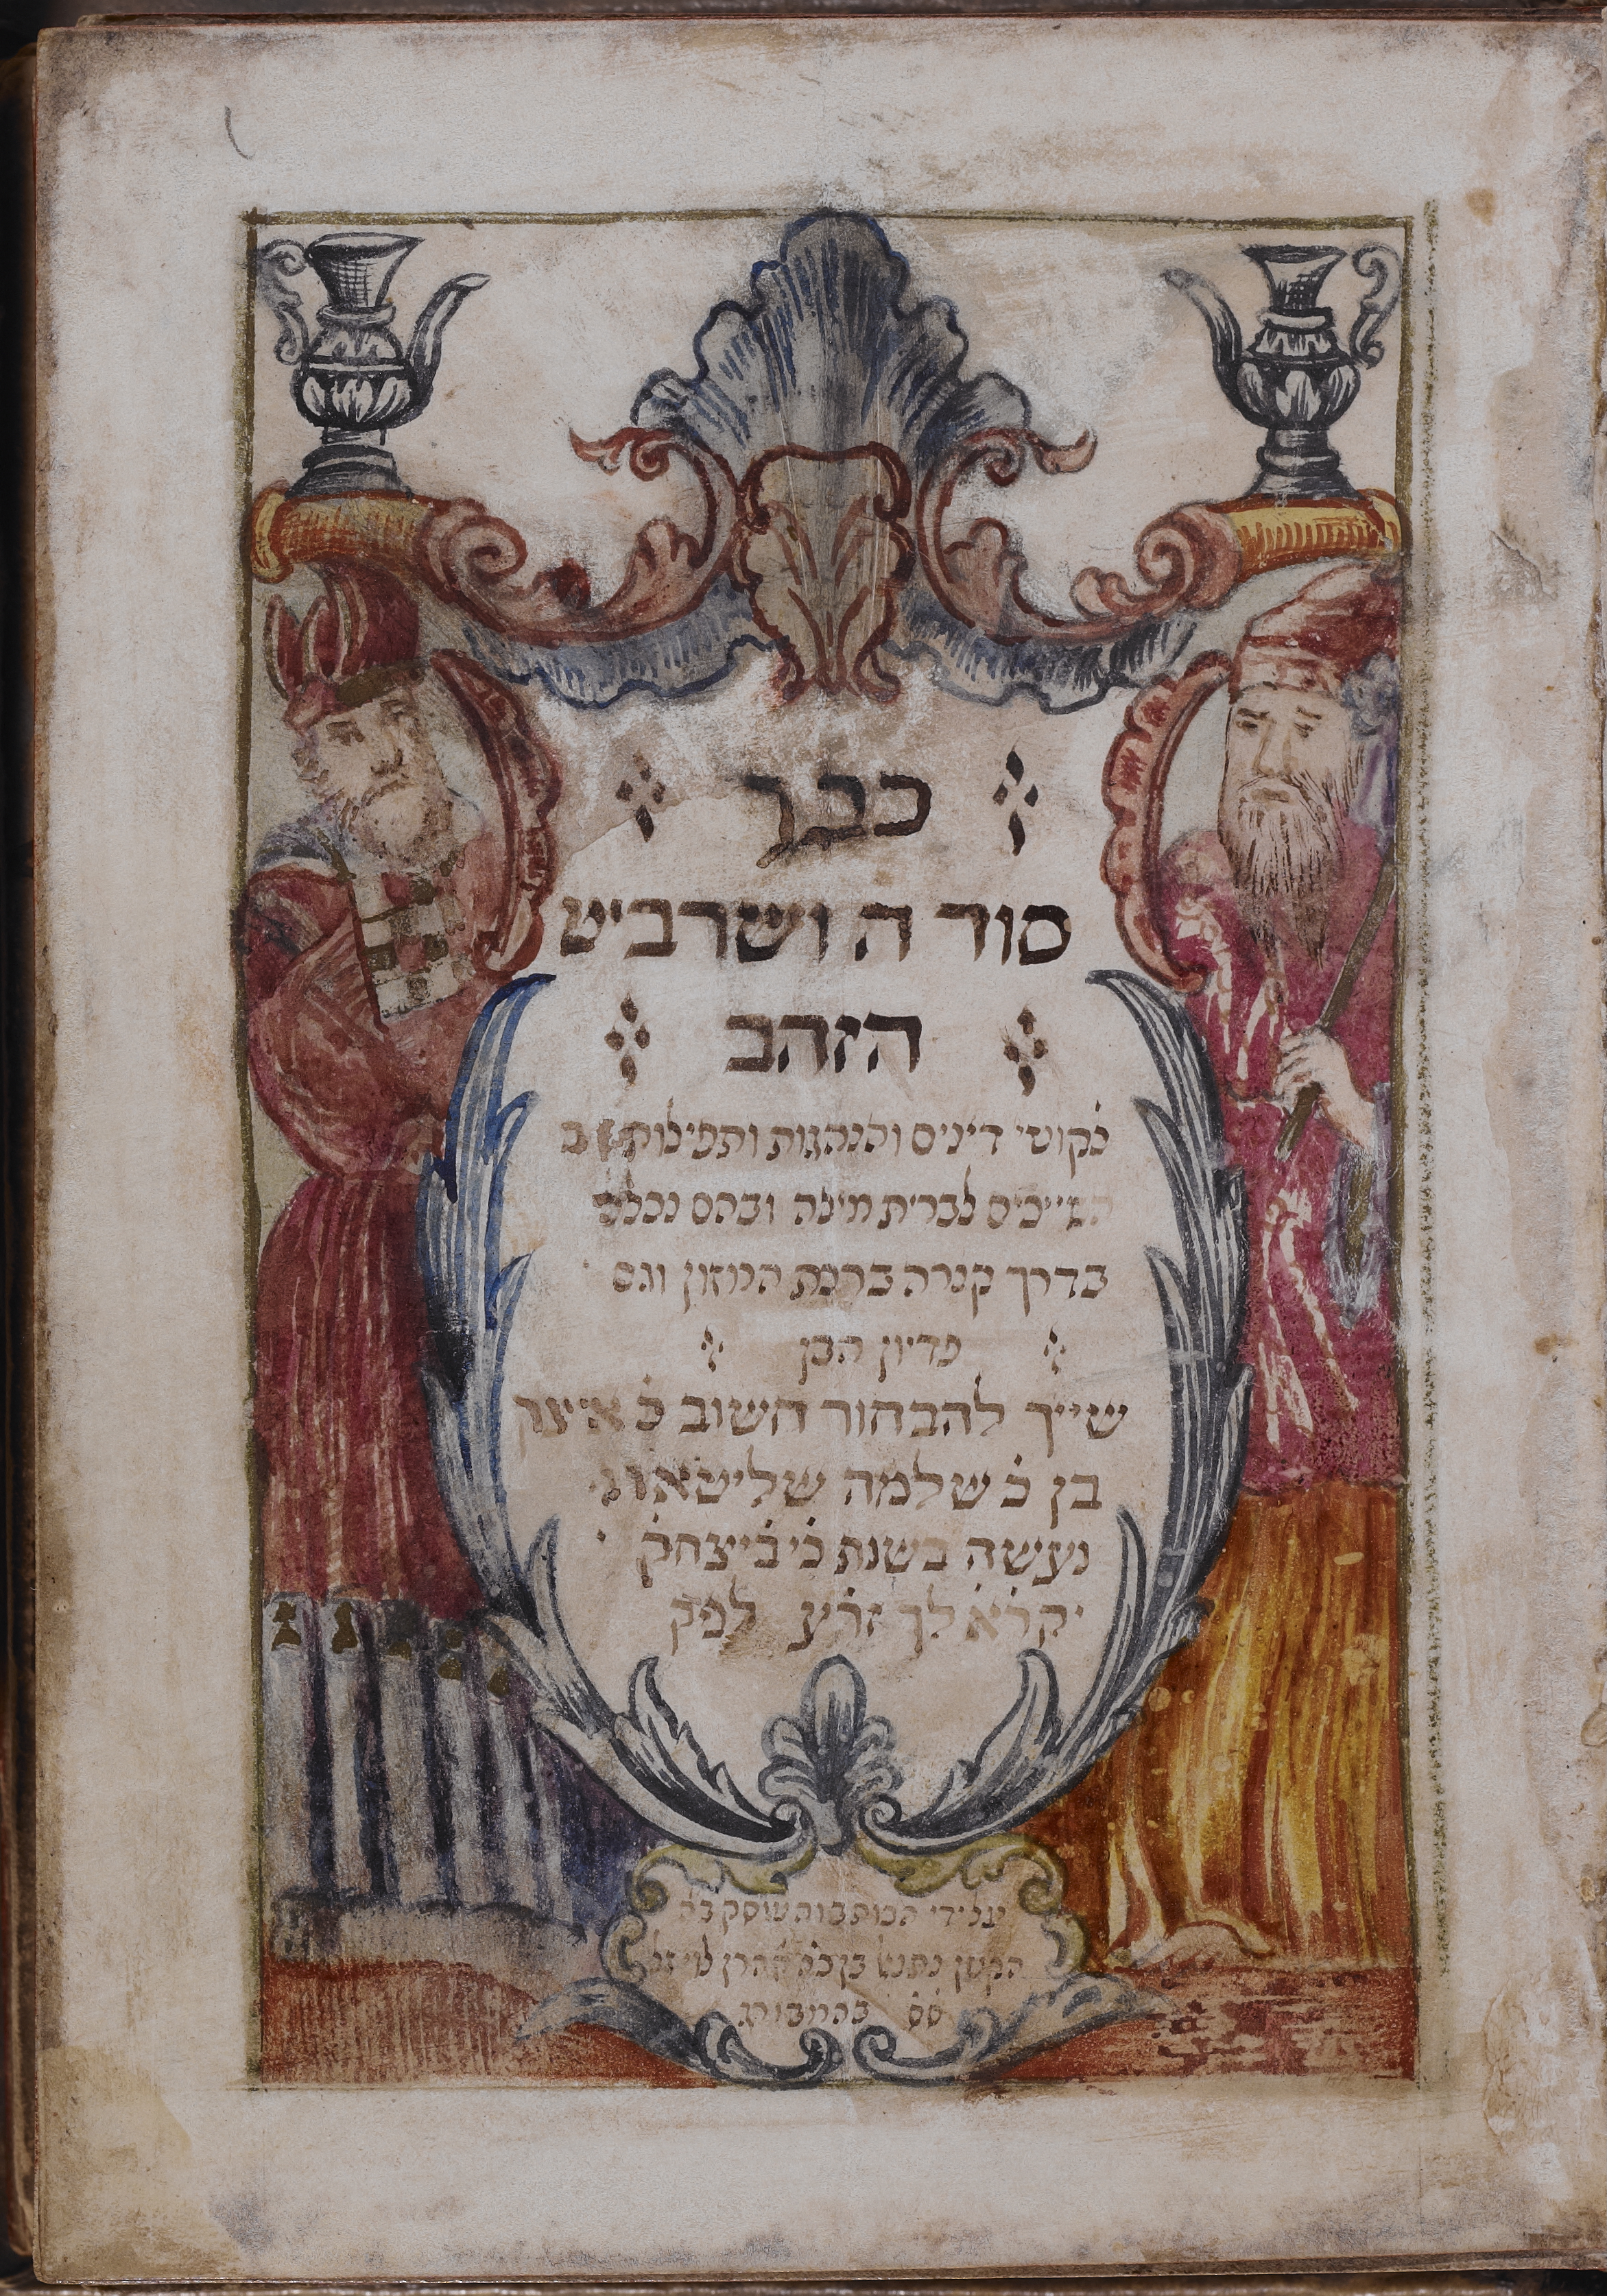 ספר
סוד ה ושרביט
הזהב
לקוטי דינים והנהגות ותפילות
השייכים לברית מילה ובהם נכלל
בדרך קצרה ברכת המזון וגם
פדיון הבן
שייך להבחור חשוב כ איצק
בן כ שלמה שליטא
נעשה בשנת כי ביצחק
יקרא לך זרע לפק
על ידי הכותב והעוסק בה
הקטן נתנאל בן כה אהרן
סס בהמבורג